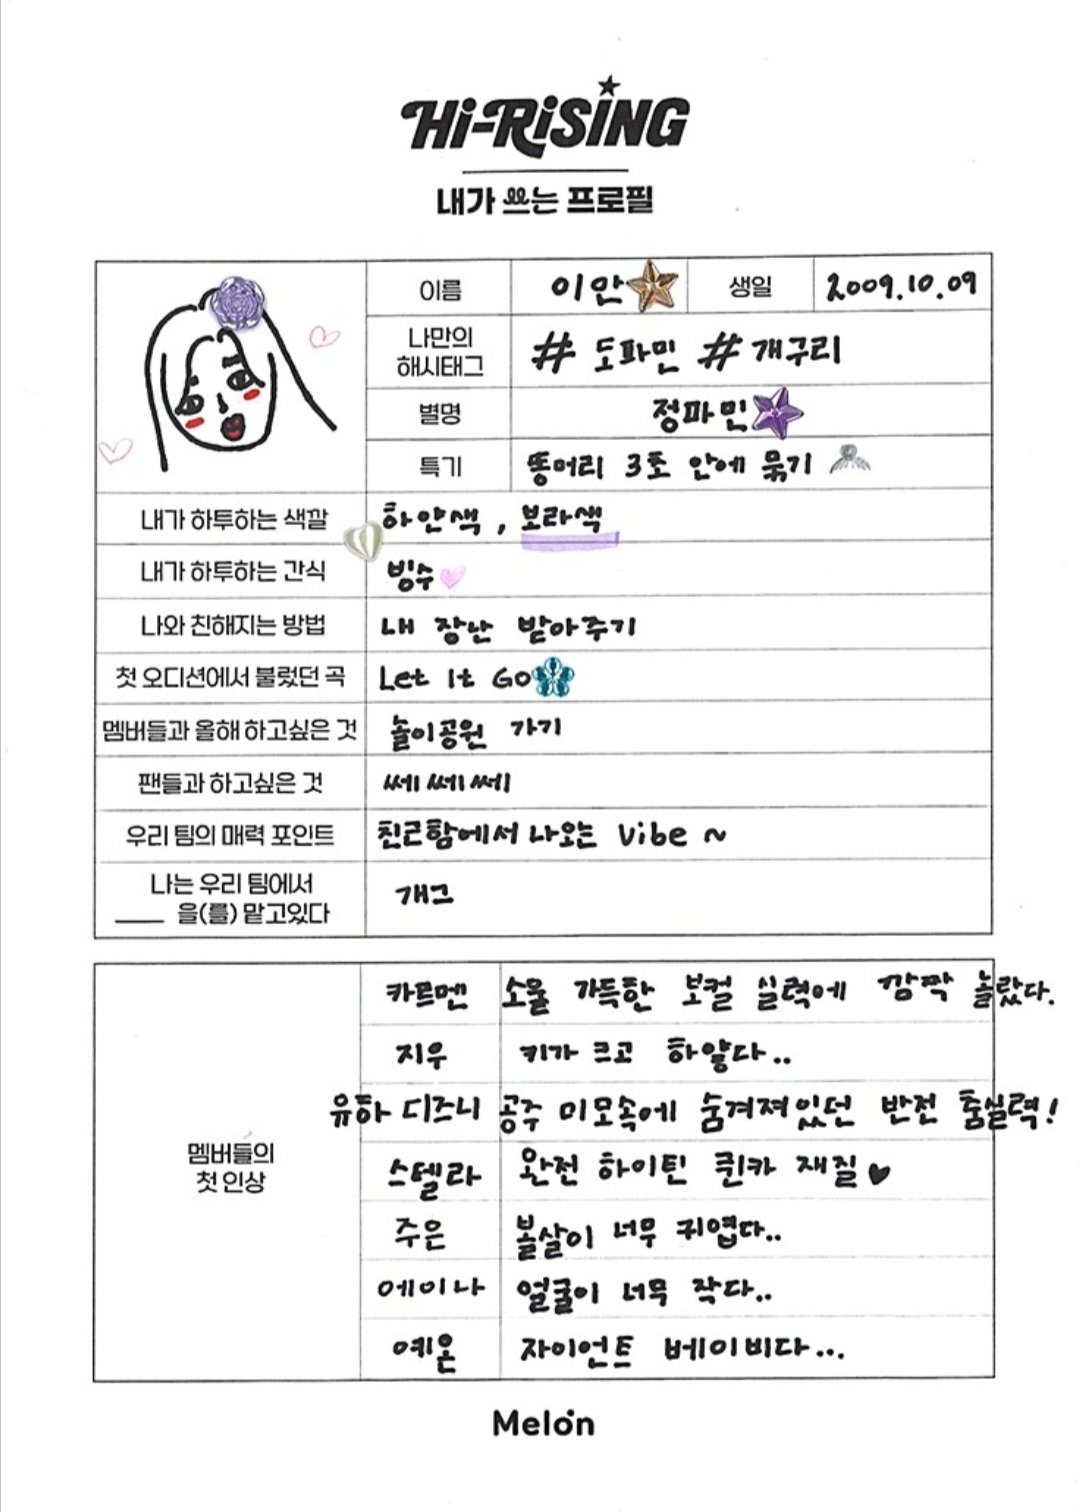 Hi-RiSiNG
내가 쓰는 프로필
이름 이안 생일 2009.10.09
나만의
해시태그 # 도파민 # 개구리
별명 정파민
특기 똥머리 3초 안에 묶기
내가 하투하는 색깔 하얀색, 보라색
내가 하투하는 간식 빙수
나와 친해지는 방법 내 장난 받아주기
첫 오디션에서 불렀던 곡 Let It Go
멤버들과 올해 하고싶은 것 놀이공원 가기
팬들과 하고싶은 것 쎄쎄쎄
우리 팀의 매력 포인트 친근함에서 나오는 Vibe ~
나는 우리 팀에서
___ 을(를) 맡고있다 개그
멤버들의
첫 인상
카르멘 소울 가득한 보컬 실력에 깜짝 놀랐다.
지우 키가 크고 하얗다..
유하 디즈니 공주 미모속에 숨겨져있던 반전 춤실력!
스텔라 완전 하이틴 퀸카 재질 ♥
주은 볼살이 너무 귀엽다..
에이나 얼굴이 너무 작다..
예온 자이언트 베이비다...
Melon